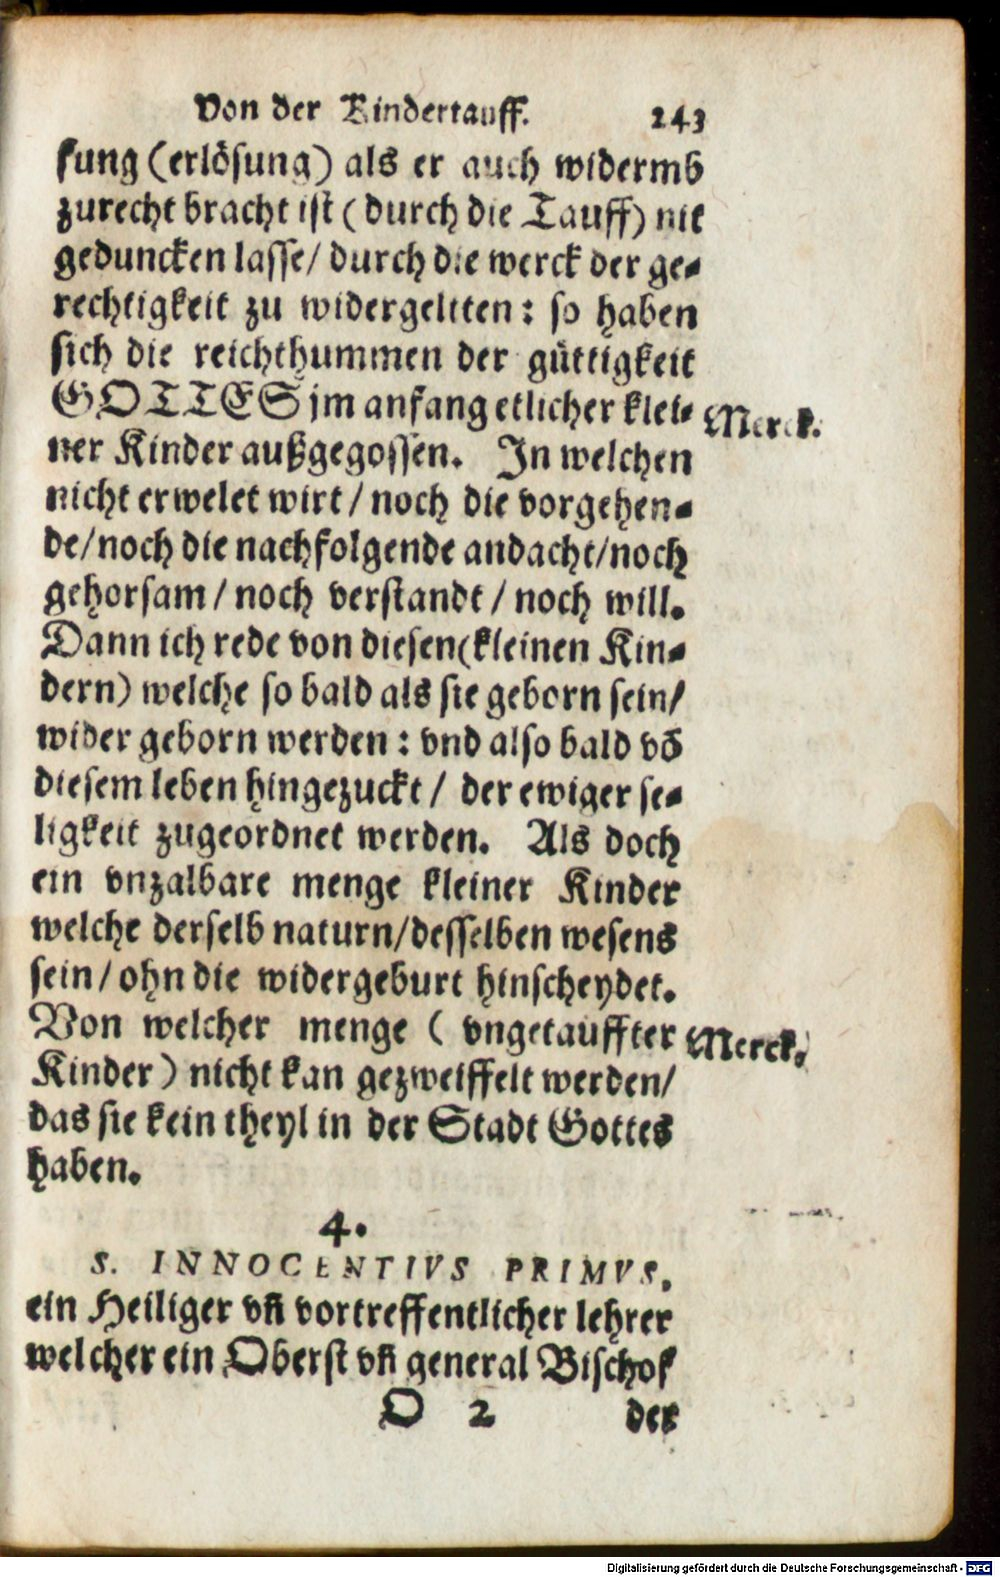 Von der Kindertauff. 243
sung (erlösung) als er auch widermb
zurecht bracht ist (durch die Tauff) nit
geduncken lasse/ durch die werck der ge-
rechtigkeit zu widergeltten: so haben
sich die reichthummen der güttigkeit
GOTTES jm anfang etlicher klei- Merck.
ner Kinder außgegossen. In welchen
nicht erwelet wirt/ noch die vorgehen-
de/ noch die nachfolgende andacht/ noch
gehorsam/ noch verstandt/ noch will.
Dann ich rede von diesen (kleinen Kin-
dern) welche so bald als sie geborn sein/
wider geborn werden: vnd also bald võ
diesem leben hingezuckt/ der ewiger se-
ligkeit zugeordnet werden. Als doch
ein vnzalbare menge kleiner Kinder
welche derselb naturn/ desselben wesens
sein/ ohn die widergeburt hinscheydet.
Von welcher menge (vngetauffter Merck.
Kinder) nicht kan gezweiffelt werden/
das sie kein theyl in der Stadt Gottes
haben.
4.
S. INNOCENTIVS PRIMVS.
ein Heiliger vñ vortreffentlicher lehrer
welcher ein Oberst vñ general Bischof
O 2 der
Digitalisierung gefördert durch die Deutsche Forschungsgemeinschaft - DFG